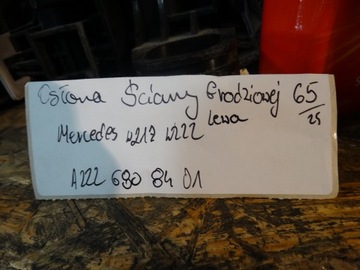 Osłona Ściany Grodziowej 65/25
Lewa
Mercedes W217 W222
A222 680 84 01